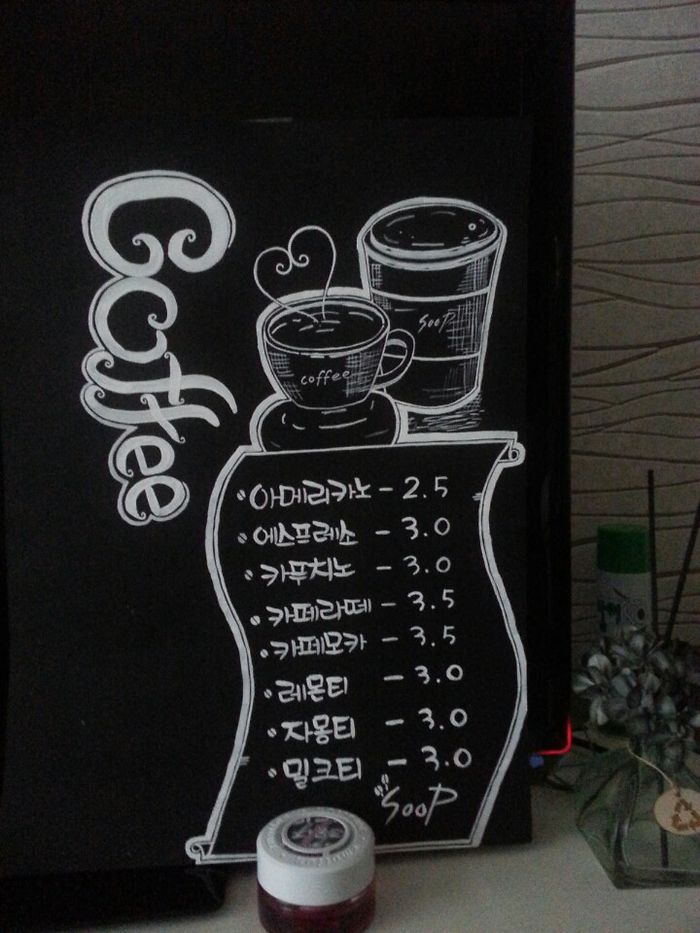 Coffee
SooP
coffee
아메리카노 - 2.5
에스프레소 - 3.0
카푸치노 - 3.0
카페라떼 - 3.5
카페모카 - 3.5
레몬티 - 3.0
자몽티 - 3.0
밀크티 - 3.0
SooP